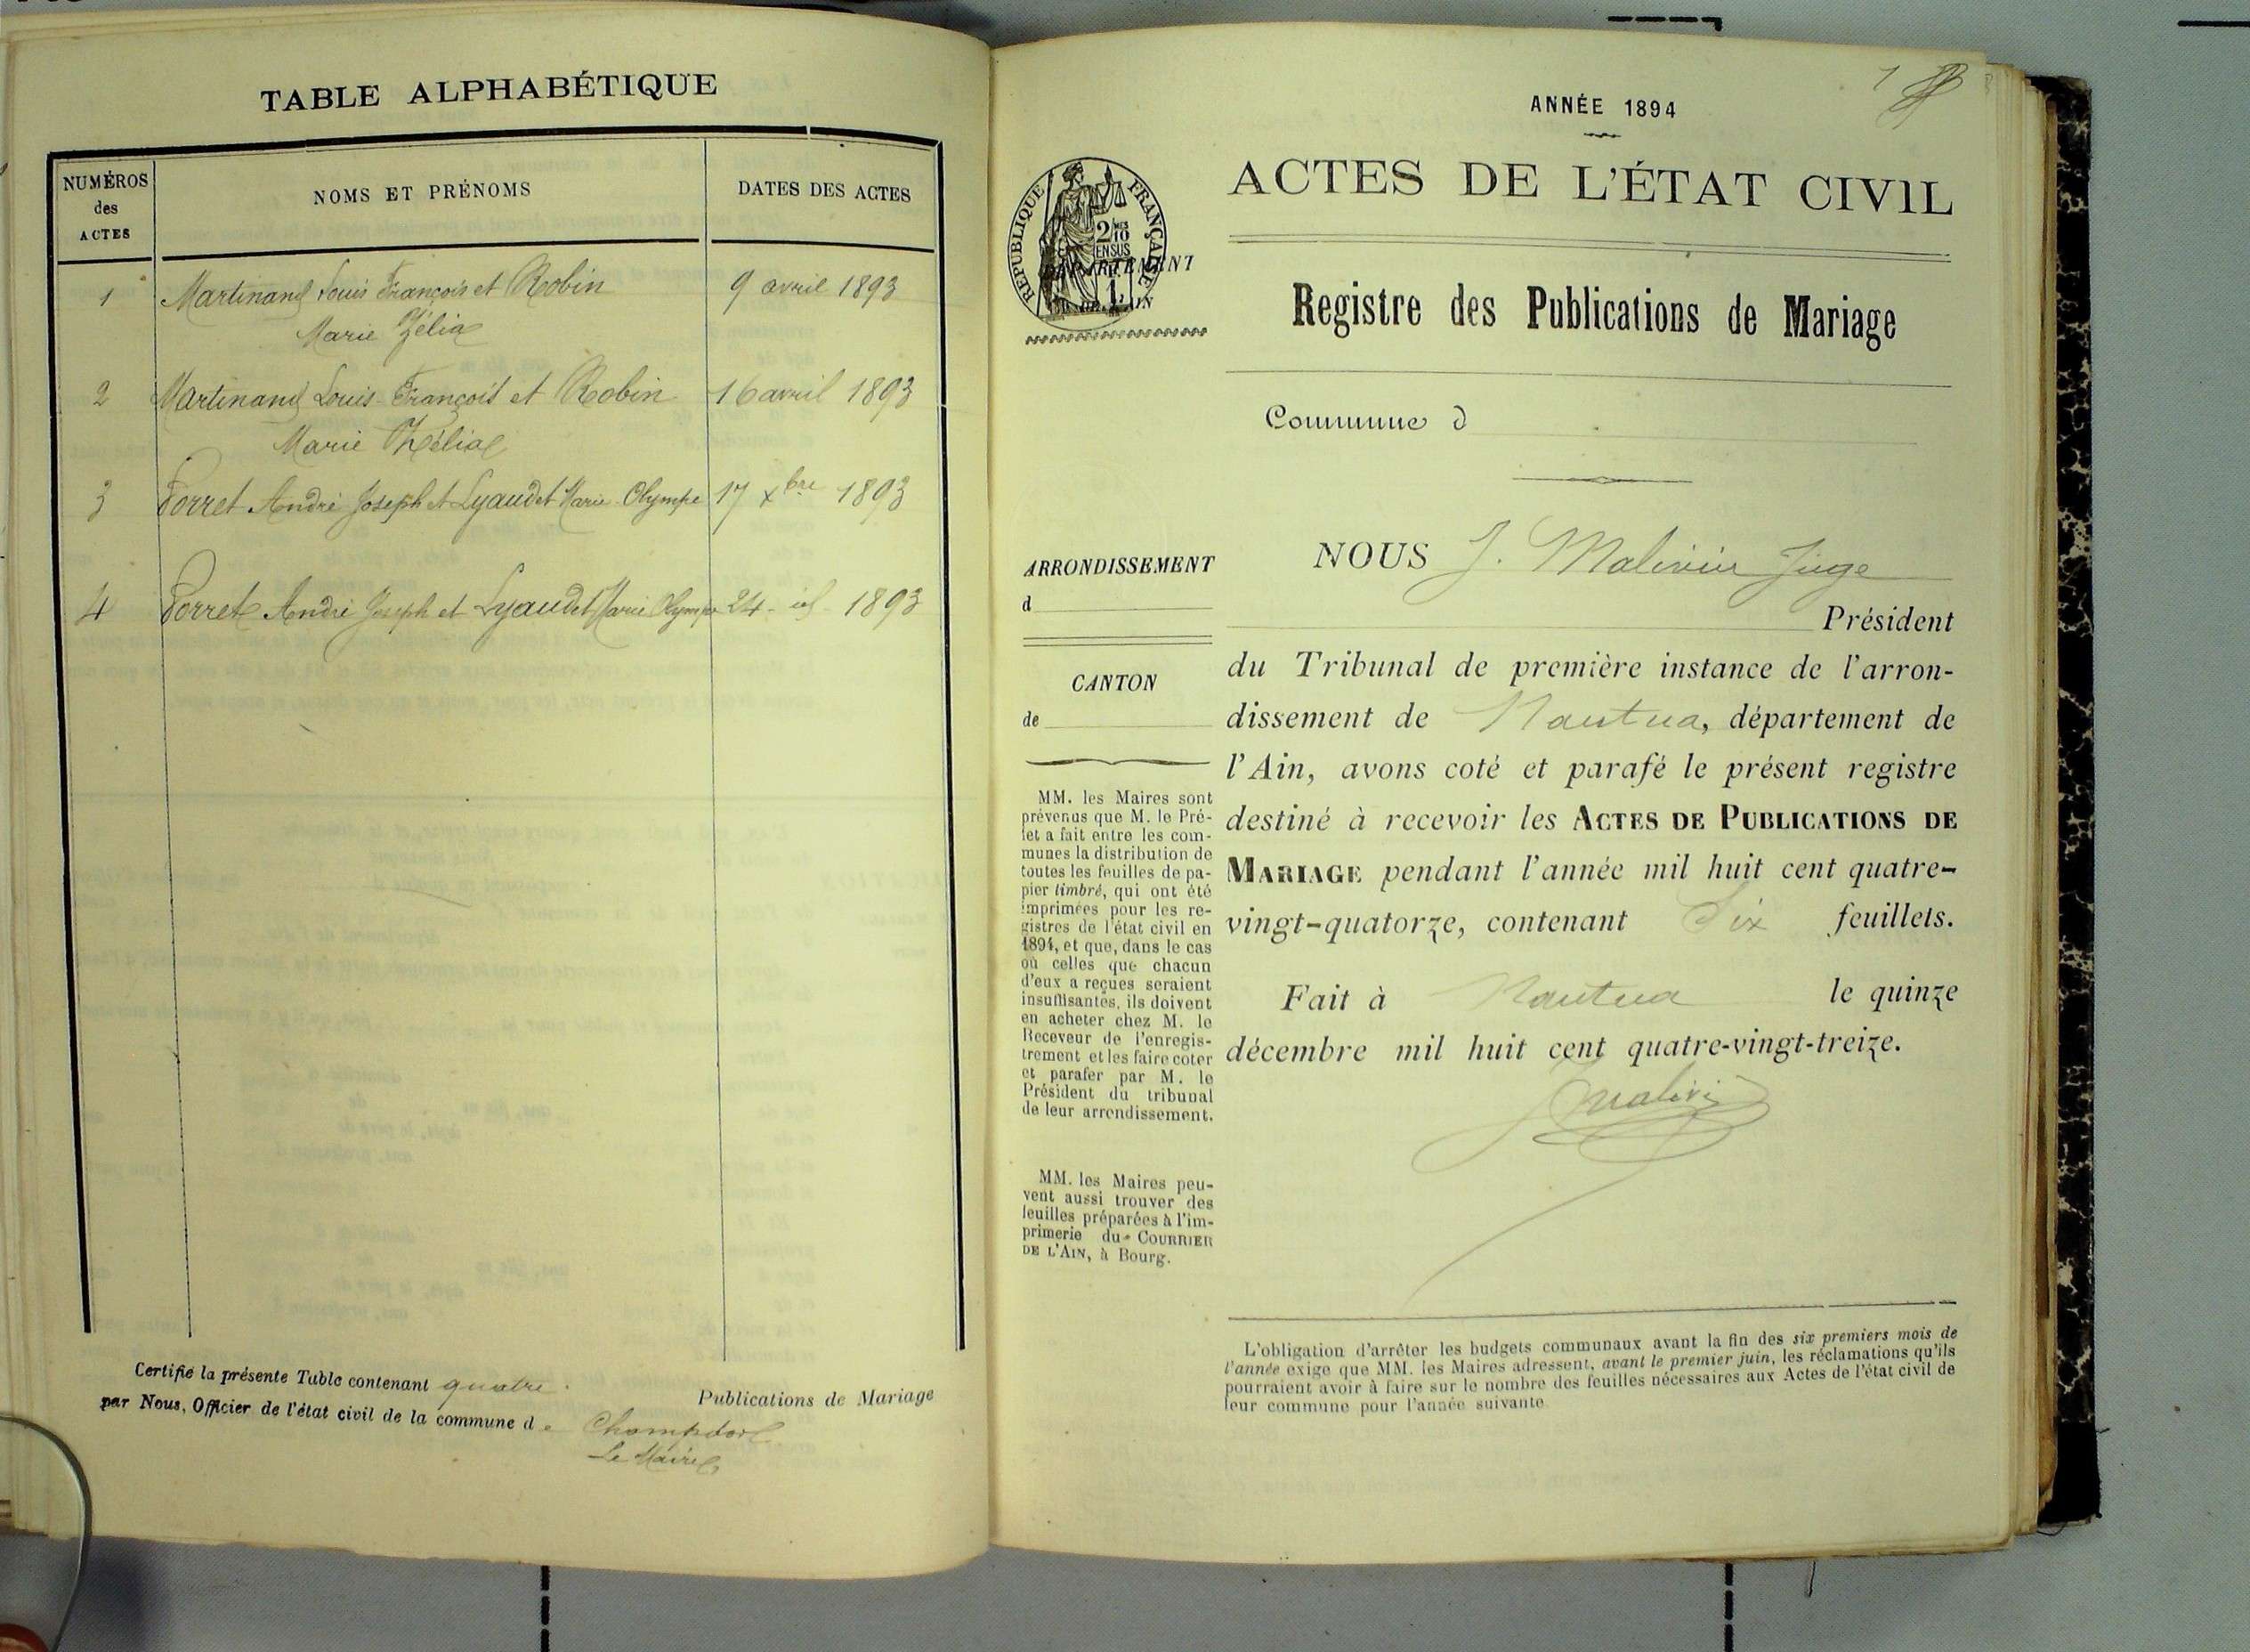 TABLE ALPHABÉTIQUE
NUMÉROS
des
ACTES
NOMS ET PRÉNOMS
DATES DES ACTES
1 Martinand Louis François et Robin 9 avril 1893
Marie Zélia
2 Martinand Louis-François et Robin 16 avril 1893
Marie Zélia
3 Porret André Joseph et Lyaudet Marie-Olympe 17 xbre 1893
4 Porret André Joseph et Lyaudet Marie Olympe 24 - id - 1893
Certifié la présente Table contenant quatre Publications de Mariage
par Nous, Officier de l'état civil de la commune de Champdor
Le Maire
1
ANNÉE 1894
ACTES DE L'ÉTAT CIVIL
RÉPUBLIQUE FRANÇAISE
2/10 EN SUS
DÉPARTEMENT
DE L'AIN
Registre des Publications de Mariage
Commune d
ARRONDISSEMENT
d
CANTON
de
MM. les Maires sont
prévenus que M. le Pré-
fet a fait entre les com-
munes la distribution de
toutes les feuilles de pa-
pier timbré, qui ont été
imprimées pour les re-
gistres de l'état civil en
1894, et que, dans le cas
où celles que chacun
d'eux a reçues seraient
insuffisantes, ils doivent
en acheter chez M. le
Receveur de l'enregis-
trement et les faire coter
et parafer par M. le
Président du tribunal
de leur arrondissement.
MM. les Maires peu-
vent aussi trouver des
feuilles préparées à l'im-
primerie du COURRIER
DE L'AIN, à Bourg.
NOUS J. Malivin Juge
Président
du Tribunal de première instance de l'arron-
dissement de Nantua, département de
l'Ain, avons coté et parafé le présent registre
destiné à recevoir les ACTES DE PUBLICATIONS DE
MARIAGE pendant l'année mil huit cent quatre-
vingt-quatorze, contenant Six feuillets.
Fait à Nantua le quinze
décembre mil huit cent quatre-vingt-treize.
L'obligation d'arrêter les budgets communaux avant la fin des six premiers mois de
l'année exige que MM. les Maires adressent, avant le premier juin, les réclamations qu'ils
pourraient avoir à faire sur le nombre des feuilles nécessaires aux Actes de l'état civil de
leur commune pour l'année suivante